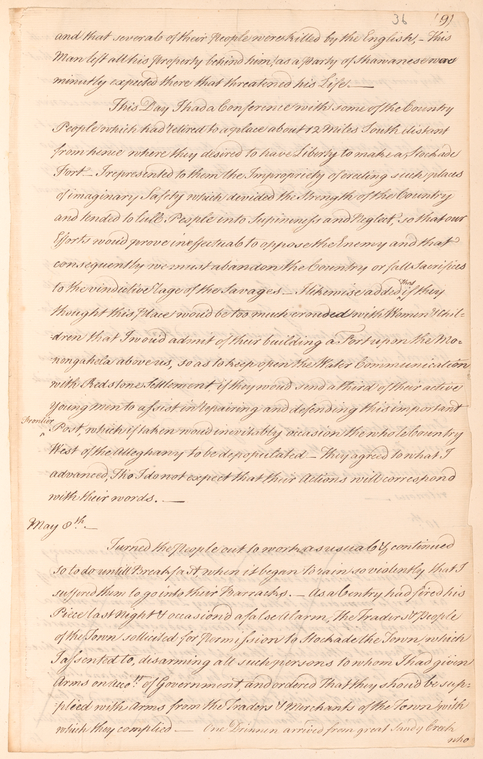 36 191
and that several of their People were killed by the English,_ This
Man left all his Property behind him, as a Party of Shawanese were
minutly expected there that threatened his Life._
This Day I had a Conference with some of the Country
People which had retired to a place about 12 Miles South, distant
from hence where they desired to have Liberty to make a Stockade
Fort_ I represented to them the Impropriety of erecting such places
of imaginary Safety which divided the Strength of the Country
and tended to lull People into Supineness and Neglect, so that our
Efforts would prove ineffectual to oppose the Enemy and that
consequently we must abandon the Country or fall Sacrifices
to the vindictive Rage of the Savages._ I likewise added that if they
thought this Place would be too much crouded with Women & Chil-
dren that I woud admit of their building a Fort upon the Mo-
nongahela above us, so as to keep open the Water Communication
with Redstone Settlement if they woud send a third of their active
young men to assist in repairing and defending this important
Frontier Post which if taken woud inevitably occasion the whole Country
West of the Alleghany to be depopulated_ They agreed to what I
advanced, Tho I do not expect that their Actions will correspond
with their words._
May 8th._
Turned the People out to work as usual & continued
so to do untill Breakfast when it began to rain so violently that I
suffered them to go into their Barracks._ As a Centry had fired his
Piece last Night & occasiond a false Alarm, the Traders & People
of the Town solicited for permission to Stockade the Town which
I assented to, disarming all such persons to whom I had given
Arms on Acct. of Government, and ordered that they shoud be sup-
plied with Arms from the Traders & Merchants of the Town with
which they complied_ One Drinnen arrived from great Sandy Creek
who